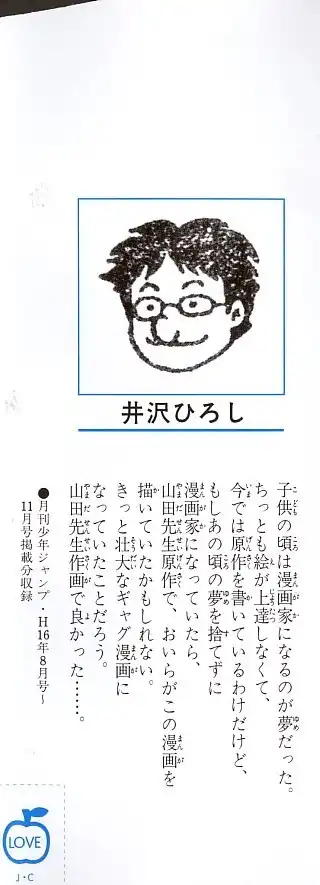 井沢ひろし
子供の頃は漫画家になるのが夢だった。
ちっとも絵が上達しなくて、
今では原作を書いているわけだけど、
もしあの頃の夢を捨てずに
漫画家になっていたら、
山田先生原作で、おいらがこの漫画を
描いていたかもしれない。
きっと壮大なギャグ漫画に
なっていたことだろう。
山田先生作画で良かった……。
●月刊少年ジャンプ・H16年8月号～
11月号掲載分収録
LOVE
J・C